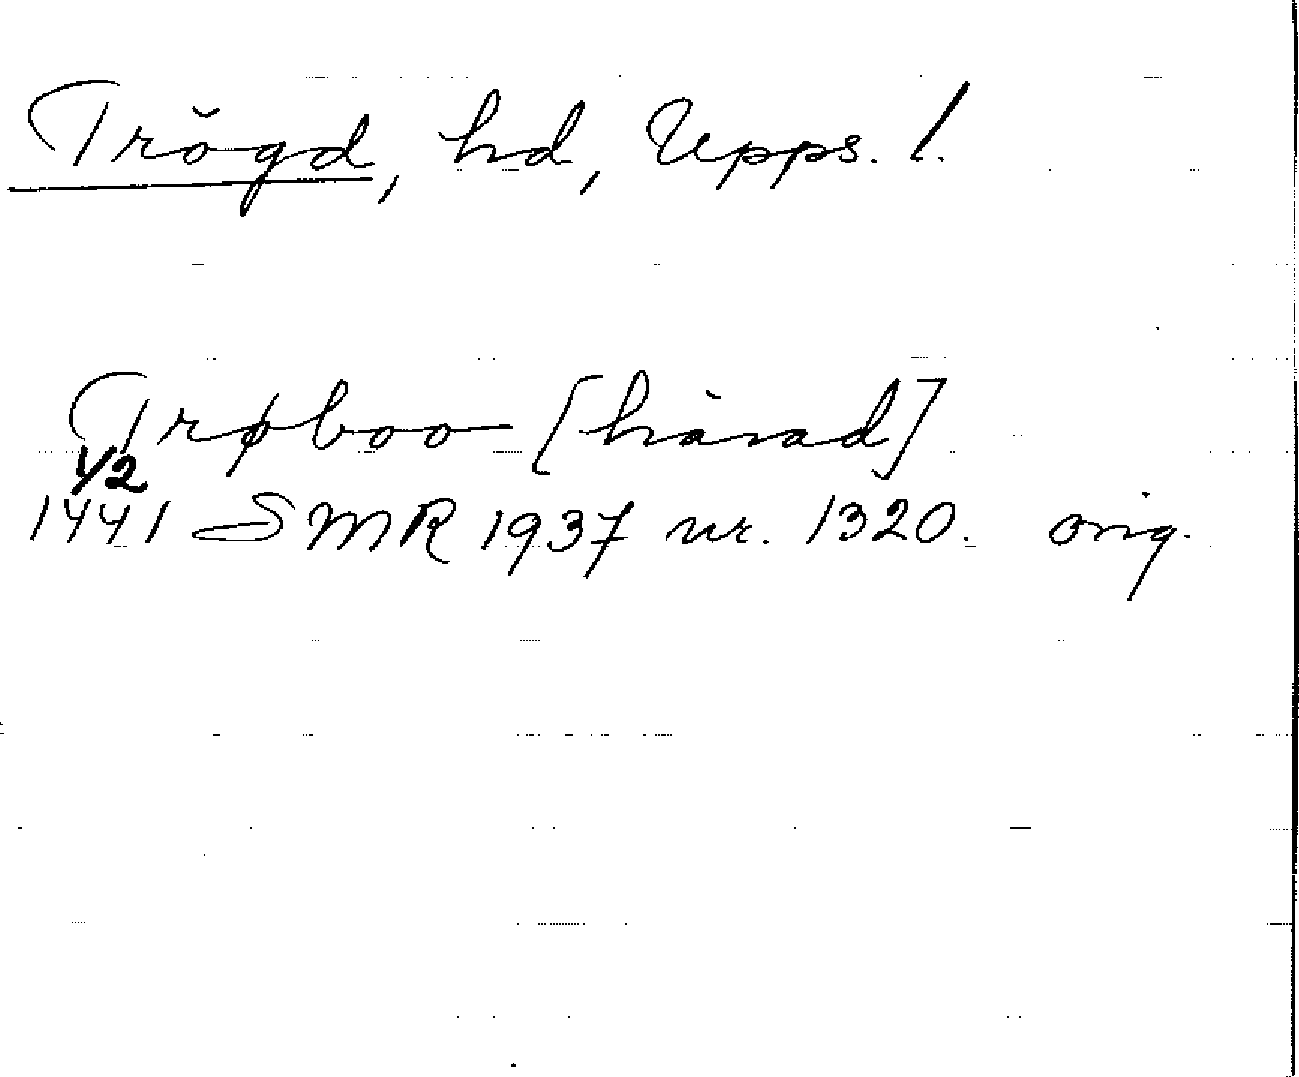 Trögd, hd, Upps. l.
Trøboo [härad]
1/2
1441 SMR 1937 nr. 1320. orig.